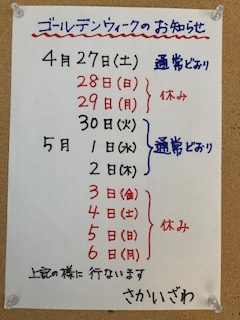 ゴールデンウィークのお知らせ
4月27日(土) 通常どおり
28日(日)
29日(月) 休み
30日(火)
5月1日(水) 通常どおり
2日(木)
3日(金)
4日(土)
5日(日) 休み
6日(月)
上記の様に行ないます
さかいざわ